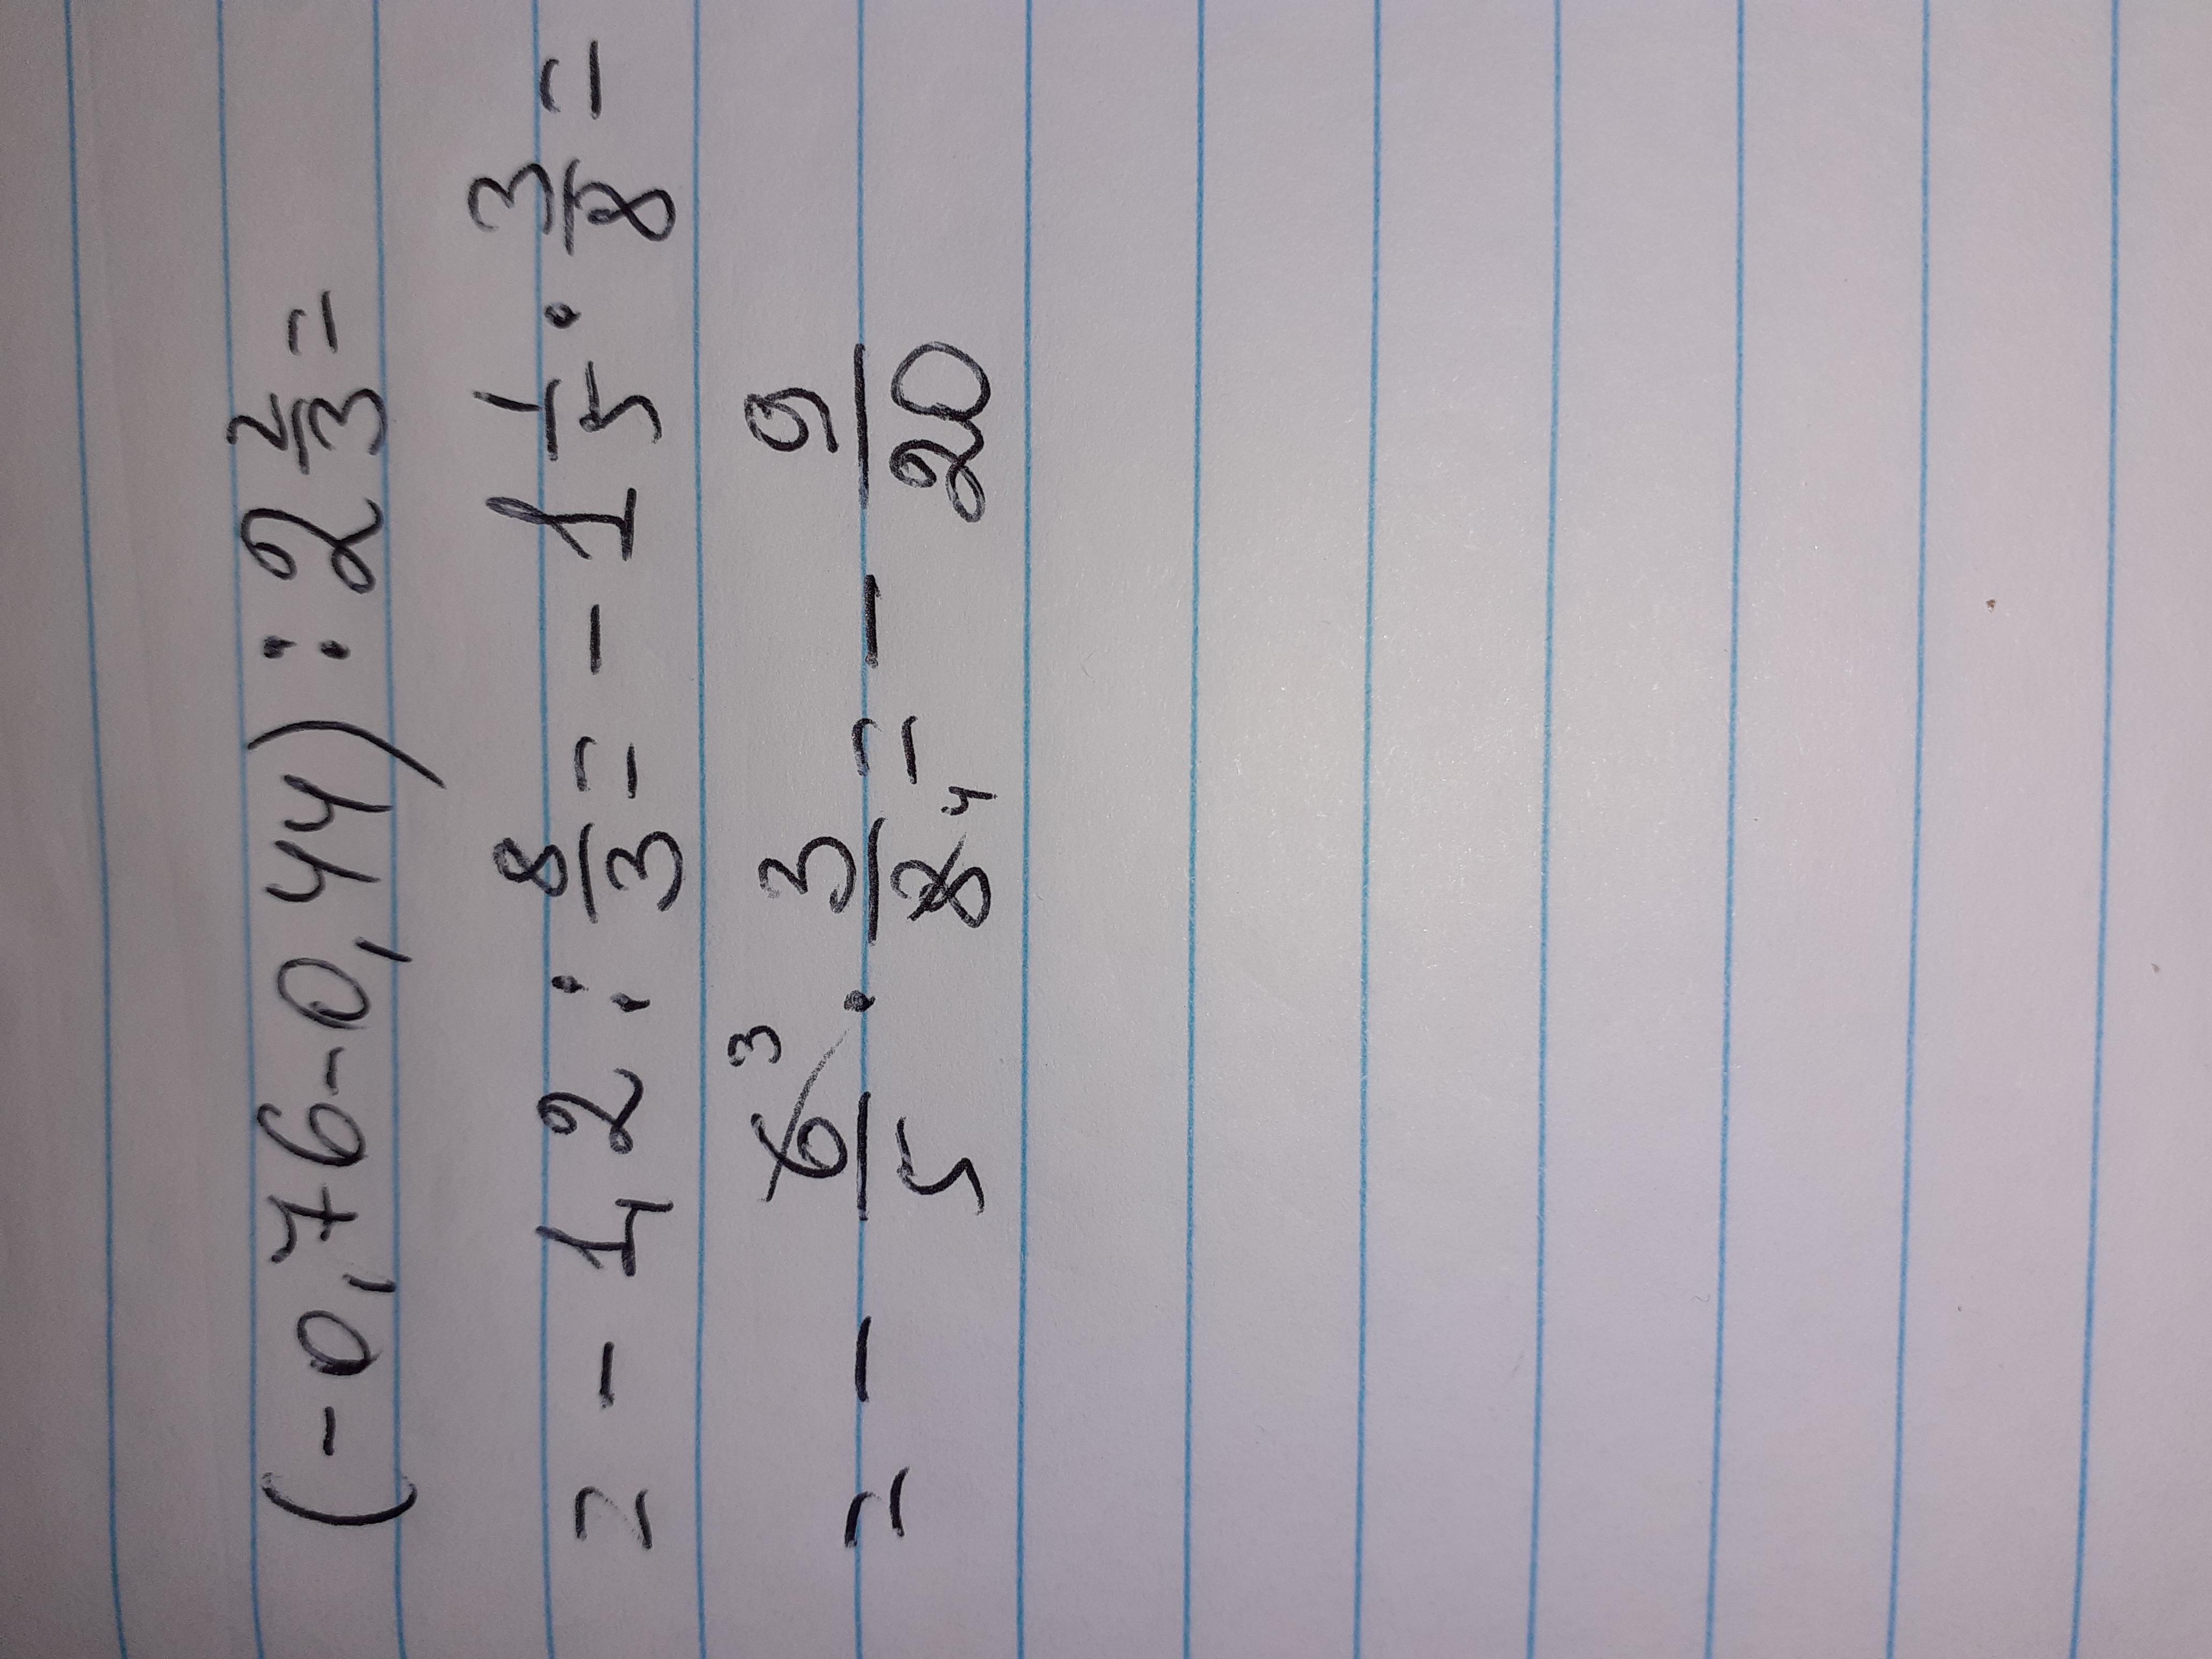 (-0,76-0,44) : 2 2/3 =
= - 1,2 : 8/3 = - 1 1/5 · 3/8 =
= - 6/5 3 · 3/8 4 = - 9/20